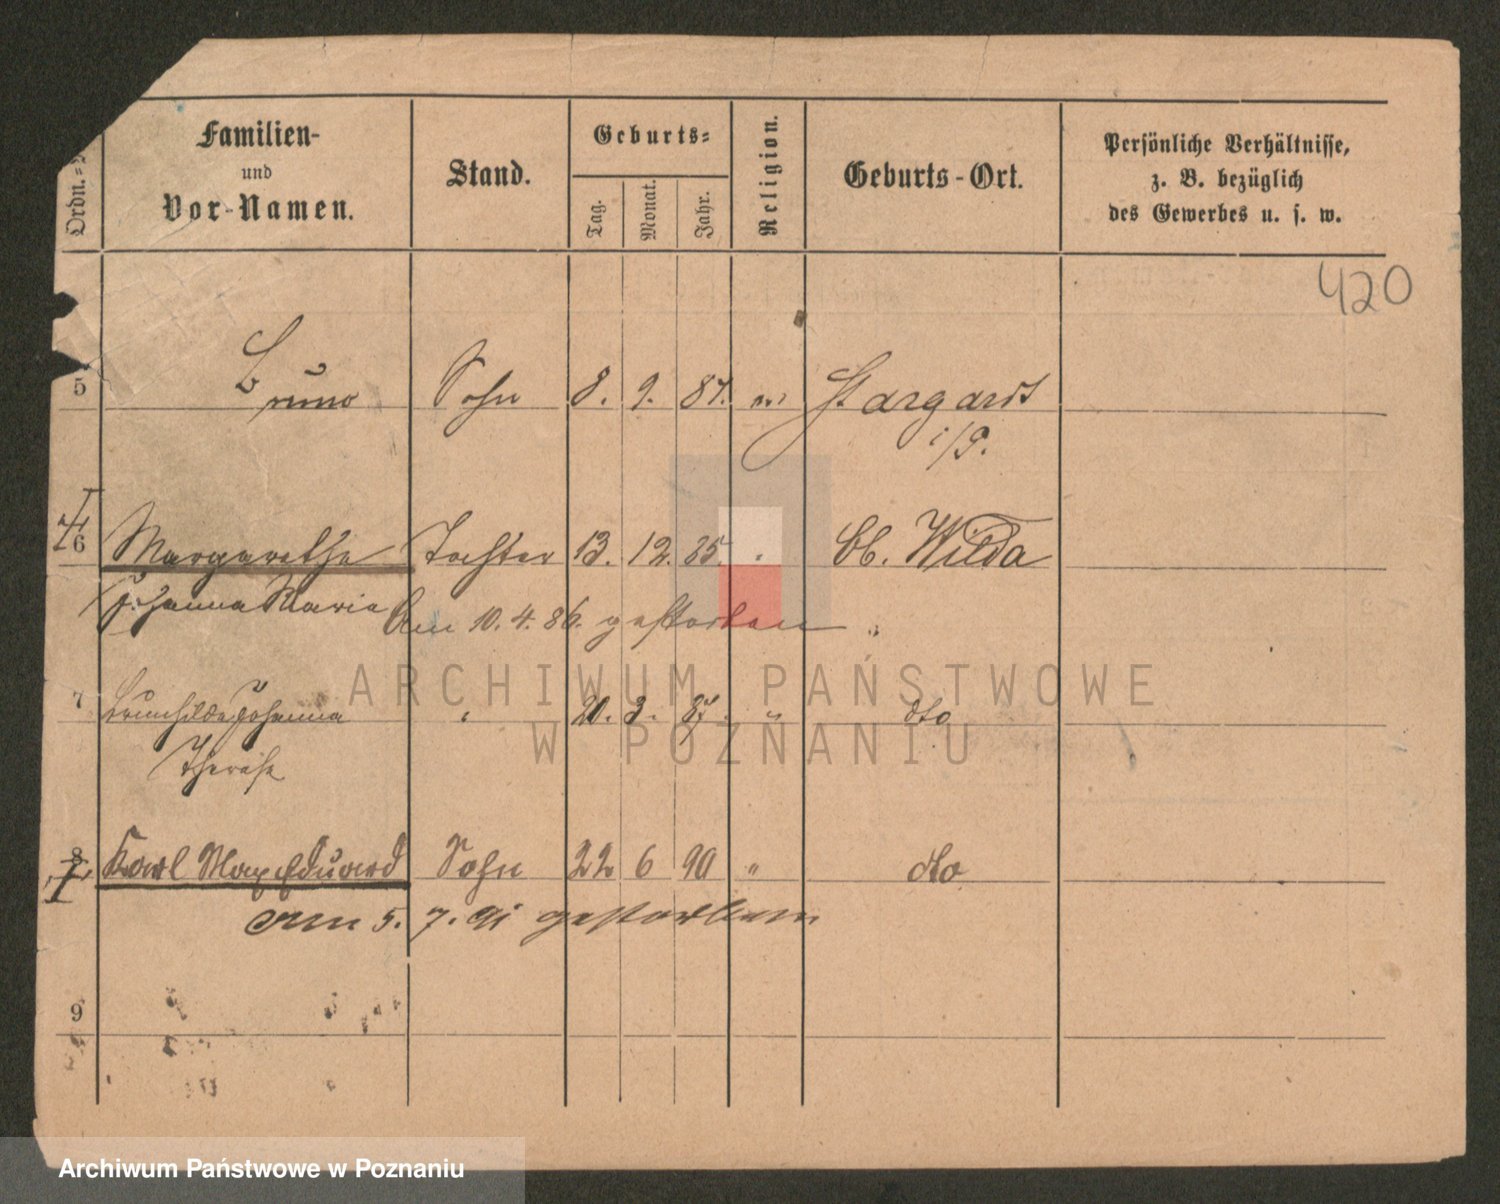 Ordn.=
Familien-
und
Vor-Namen.
Stand.
Geburts=
Tag.
Monat.
Jahr.
Religion.
Geburts-Ort.
Persönliche Verhältnisse,
z. B. bezüglich
des Gewerbes u. s. w.
420
5 Bruno Sohn 8. 9. 81. Stargardt
i/P.
6 Margarethe Tochter 13. 12. 85. " Wilda
Johanna Maria Am 10. 4. 86. gestorben
7 Brunhilde Johanna " 20. 3. 87. " dto
Therese
8 Karl Max Eduard Sohn 22 6 90 " dto
am 5. 7. 91 gestorben
9
ARCHIWUM PAŃSTWOWE
W POZNANIU
Archiwum Państwowe w Poznaniu